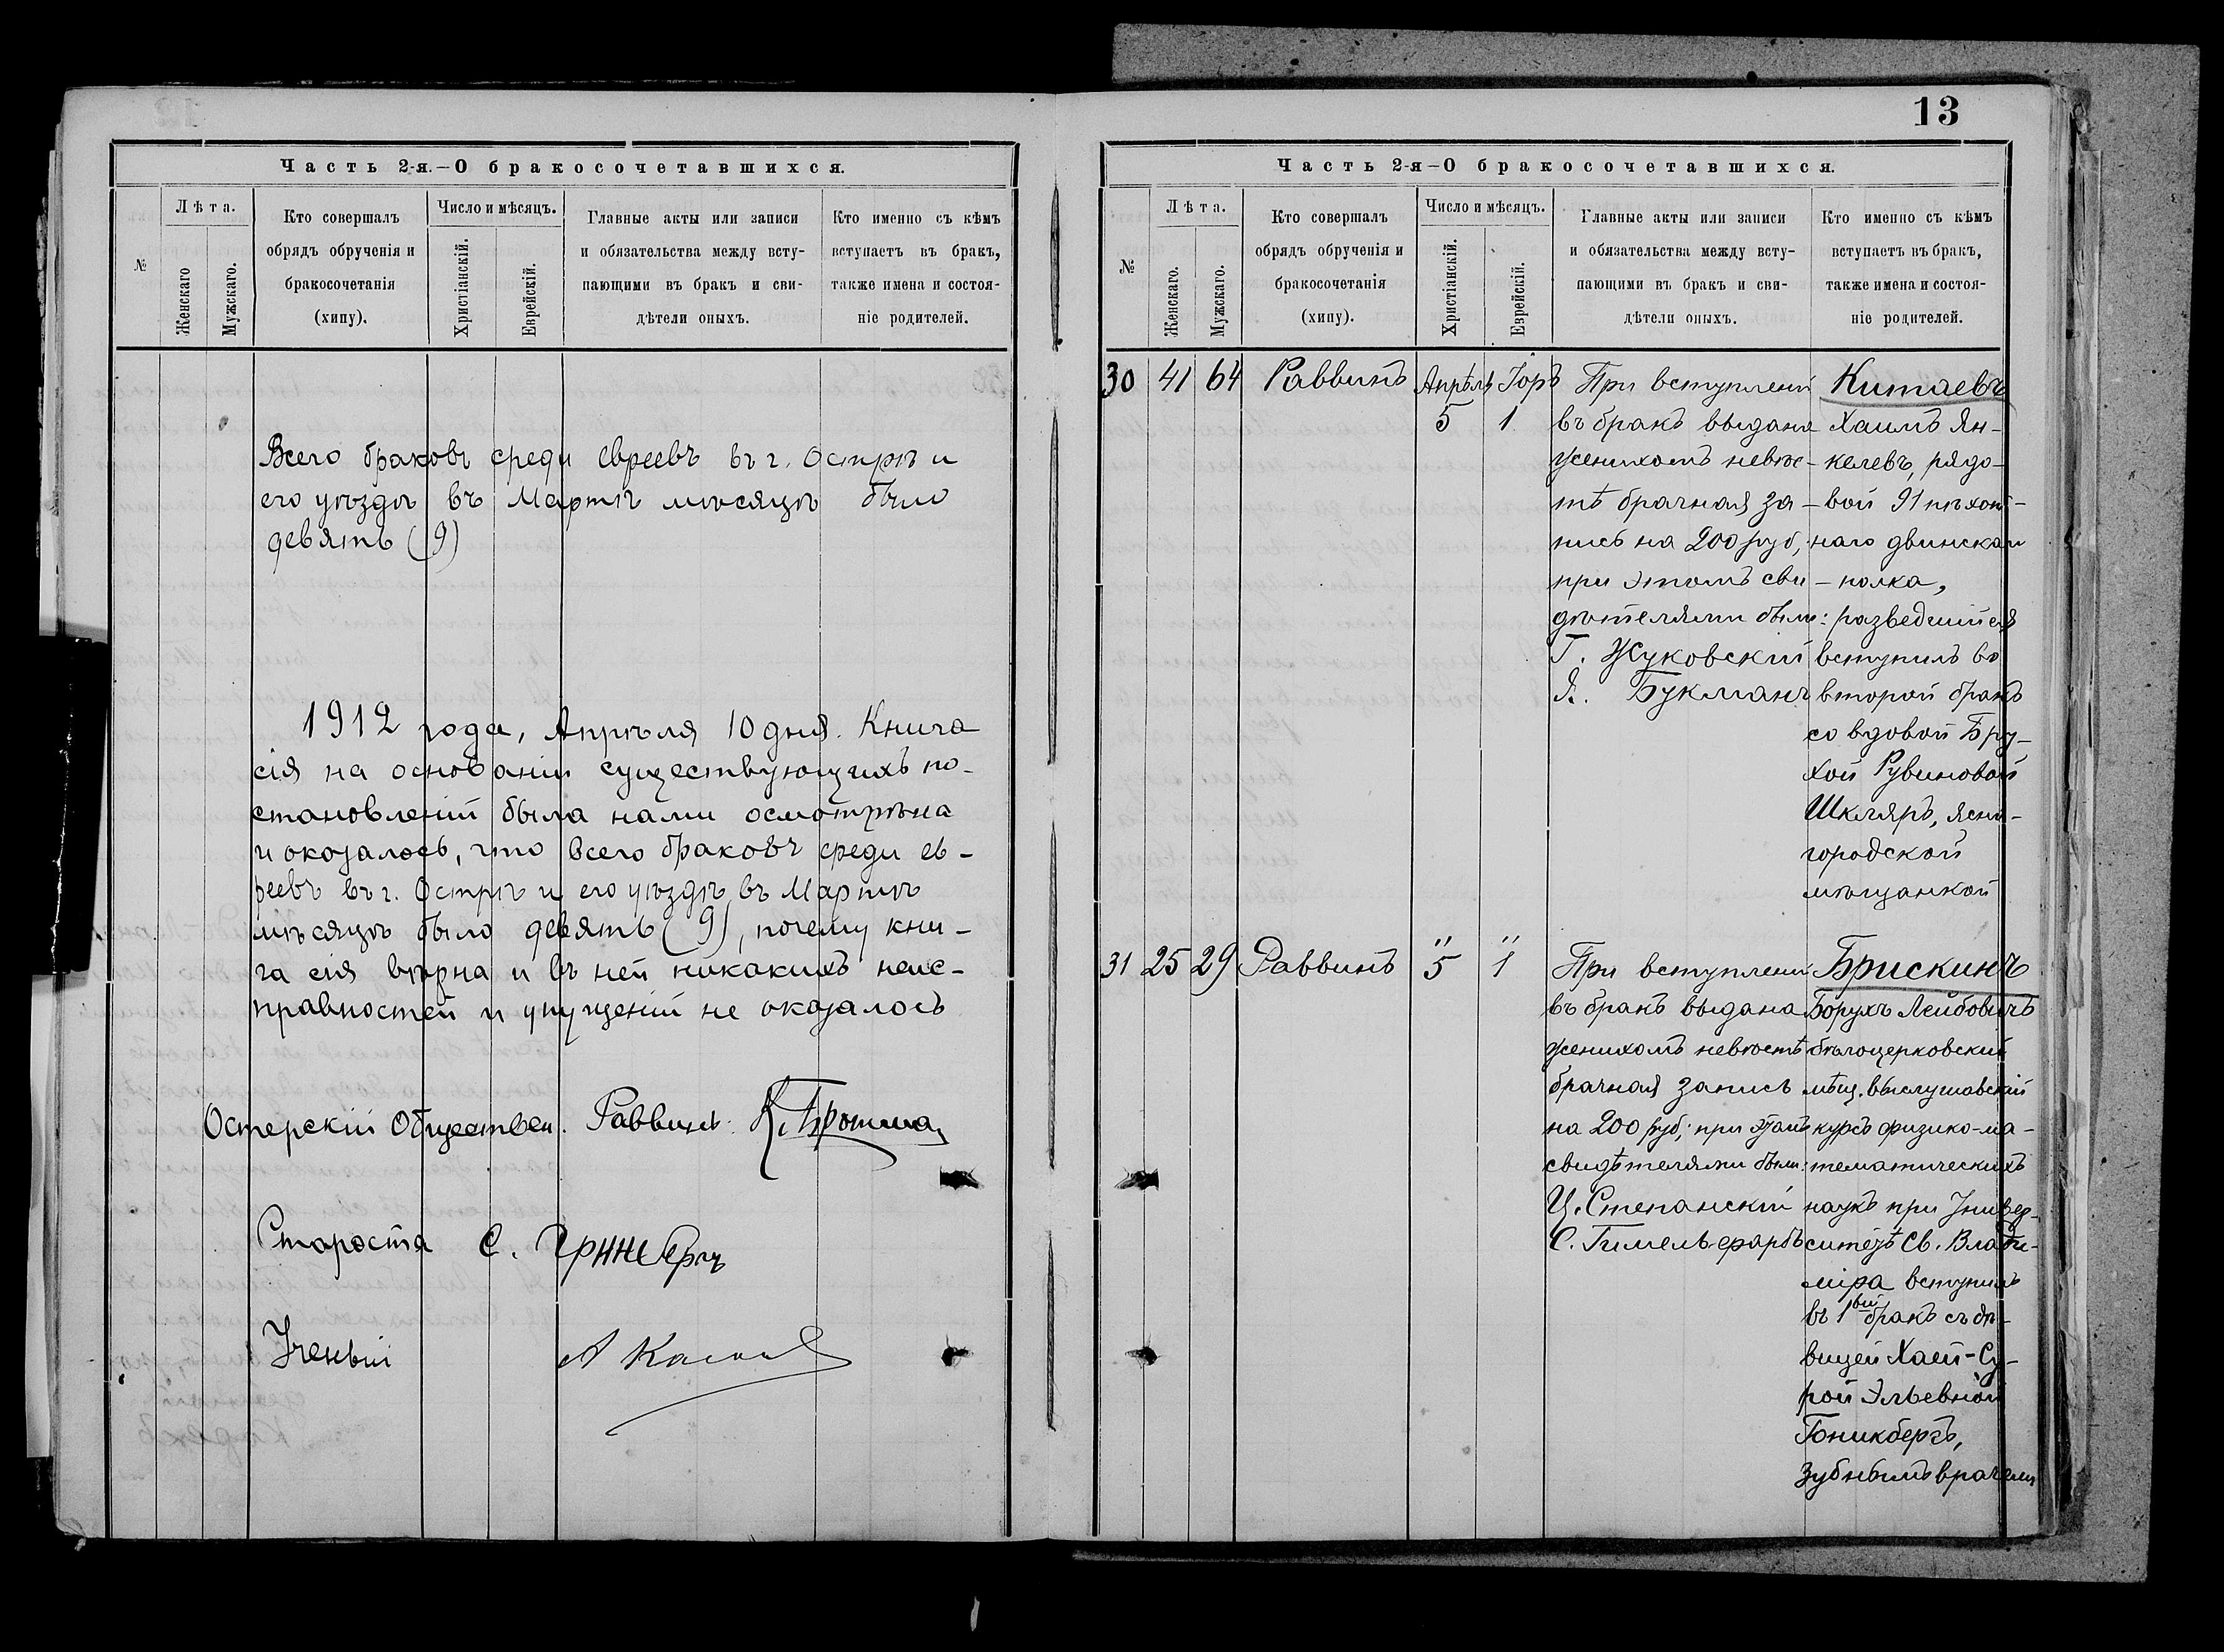 Часть 2-я.—О бракосочетавшихся.
№
Лѣта.
Женскаго
Мужскаго.
Кто совершалъ
обрядъ обрученія и
бракосочетанія
(хипу).
Число и мѣсяцъ.
Христіанскій.
Еврейскій.
Главные акты или записи
и обязательства между всту-
пающими въ бракъ и сви-
дѣтели оныхъ.
Кто именно съ кѣмъ
вступаетъ въ бракъ,
также имена и состоя-
ніе родителей.
Всего браковъ среди евреевъ въ г. Острѣ и
его уѣздѣ въ Мартѣ мѣсяцѣ было
девять (9)
1912 года, Апрѣля 10 дня. Книга
сія на основаніи существующихъ по-
становленій была нами осмотрѣна
и оказалось, что всего браковъ среди ев-
реевъ въ г. Острѣ и его уѣздѣ въ Мартѣ
мѣсяцѣ было девять (9), почему кни-
га сія вѣрна и въ ней никакихъ неис-
правностей и упущеній не оказалось
Остерскій Обществен. Раввинъ
Староста С. Гринбергъ
Ученый А
13
Часть 2-я—О бракосочетавшихся.
№
Лѣта.
Женскаго.
Мужскаго.
Кто совершалъ
обрядъ обрученія и
бракосочетанія
(хипу).
Число и мѣсяцъ.
Христіанскій.
Еврейскій.
Главные акты или записи
и обязательства между всту-
пающими въ бракъ и сви-
дѣтели оныхъ.
Кто именно съ кѣмъ
вступаетъ въ бракъ,
также имена и состоя-
ніе родителей.
30 41 64 Раввинъ
Апрѣль
5
Іоръ
1
При вступленіи
въ бракъ выдана
женихомъ невѣс-
тѣ брачная за-
пись на 200 руб;
при этомъ сви-
дѣтелями были:
Г. Жуковскій
Я. Букманъ
Китаевъ
Хаимъ Ян-
келевъ, рядо-
вой 91 пѣхот-
наго двинскаго
полка,
разведшійся
вступилъ во
второй бракъ
со вдовой Бру-
хой Рувиновой
Шкляръ, ясно-
городской
мѣщанкой
31 25 29 Раввинъ
" "
5 1
При вступленіи
въ бракъ выдана
женихомъ невѣстѣ
брачная запись
на 200 руб; при этомъ
свидѣтелями были:
Ц. Степанскій
С. Гимельфарбъ
Брискинъ
Борухъ Лейбовичъ
бѣлоцерковскій
мѣщ. выслушавшій
курсъ физико-ма-
тематическихъ
наукъ при Универ-
ситетѣ Св. Влади-
міра вступилъ
въ 1вый бракъ съ дѣ-
вицей Хаей-Су-
рой Эльевной
Гоникбергъ,
зубнымъ врачемъ